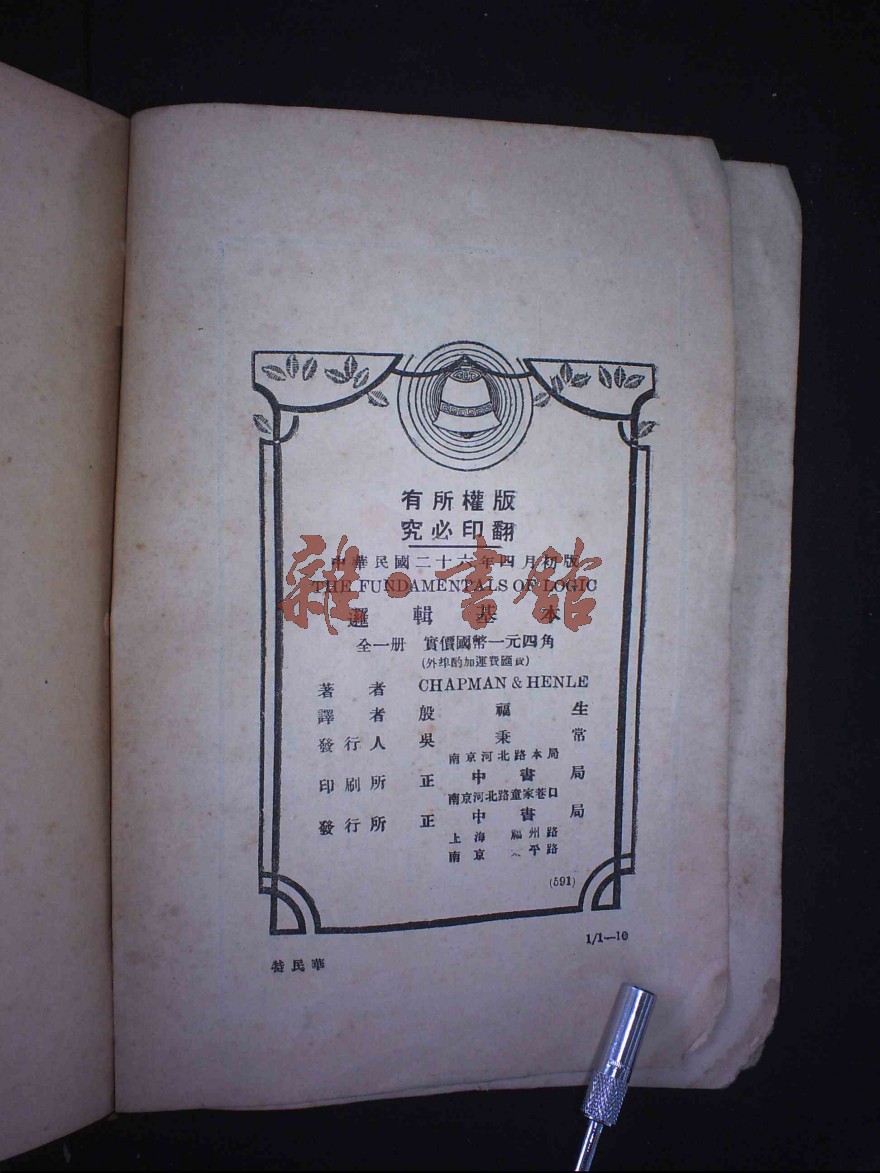 版權所有
翻印必究
中華民國二十六年四月初版
THE FUNDAMENTALS OF LOGIC
邏輯基本
全一册 實價國幣一元四角
(外埠酌加運費匯費)
著者 CHAPMAN & HENLE
譯者 殷福生
發行人 吳秉常
南京河北路本局
印刷所 正中書局
南京河北路童家巷口
發行所 正中書局
上海 福州路
南京 太平路
(591)
1/1—10
特民華
雜·書館